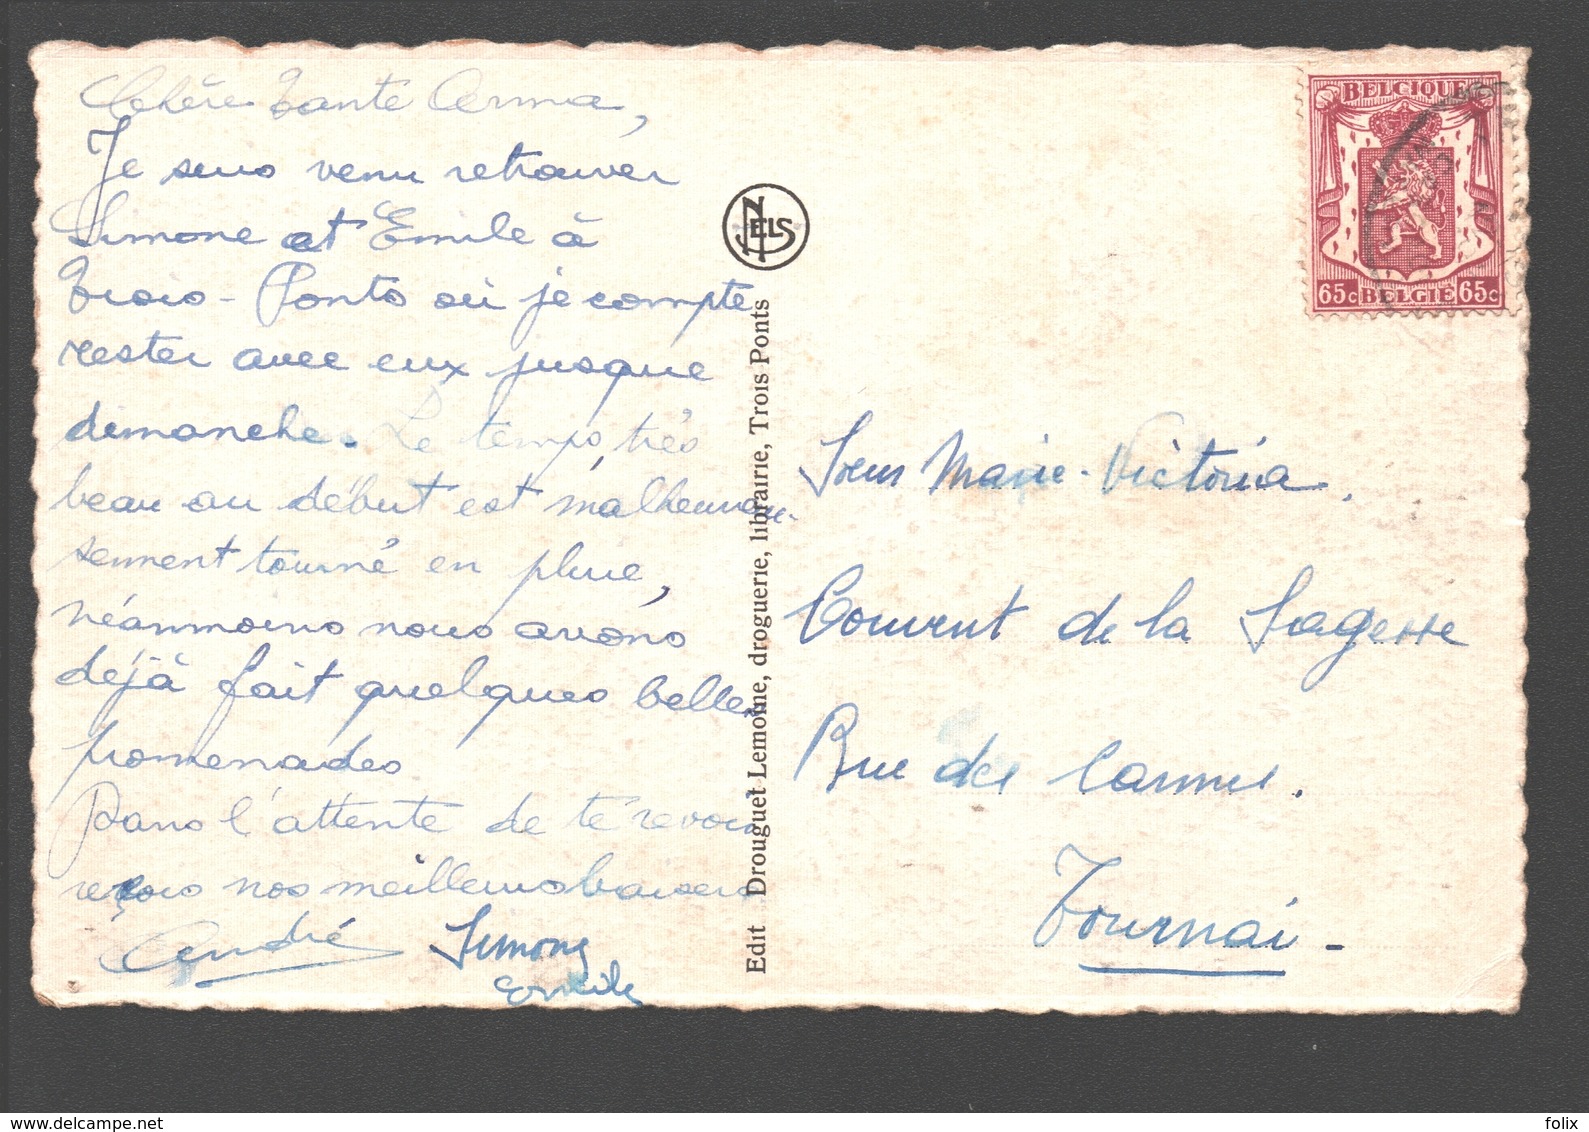 Chère Tante Anna,
Je suis venu retrouver
Simone et Emile à
Trois-Ponts où je compte
rester avec eux jusque
dimanche. Le temps, très
beau au début est malheureu-
sement tourné en pluie,
néanmoins nous avons
déjà fait quelques belles
promenades
Dans l'attente de te revoir
reçois nos meilleurs baisers
André Simone
Emile
NELS
Edit Drouguet Lemoine, droguerie, librairie, Trois Ponts
BELGIQUE
65c BELGIE 65c
Sœur Marie-Victoria.
Couvent de la Sagesse
Rue des Carmes.
Tournai-
delcampe.net
folix